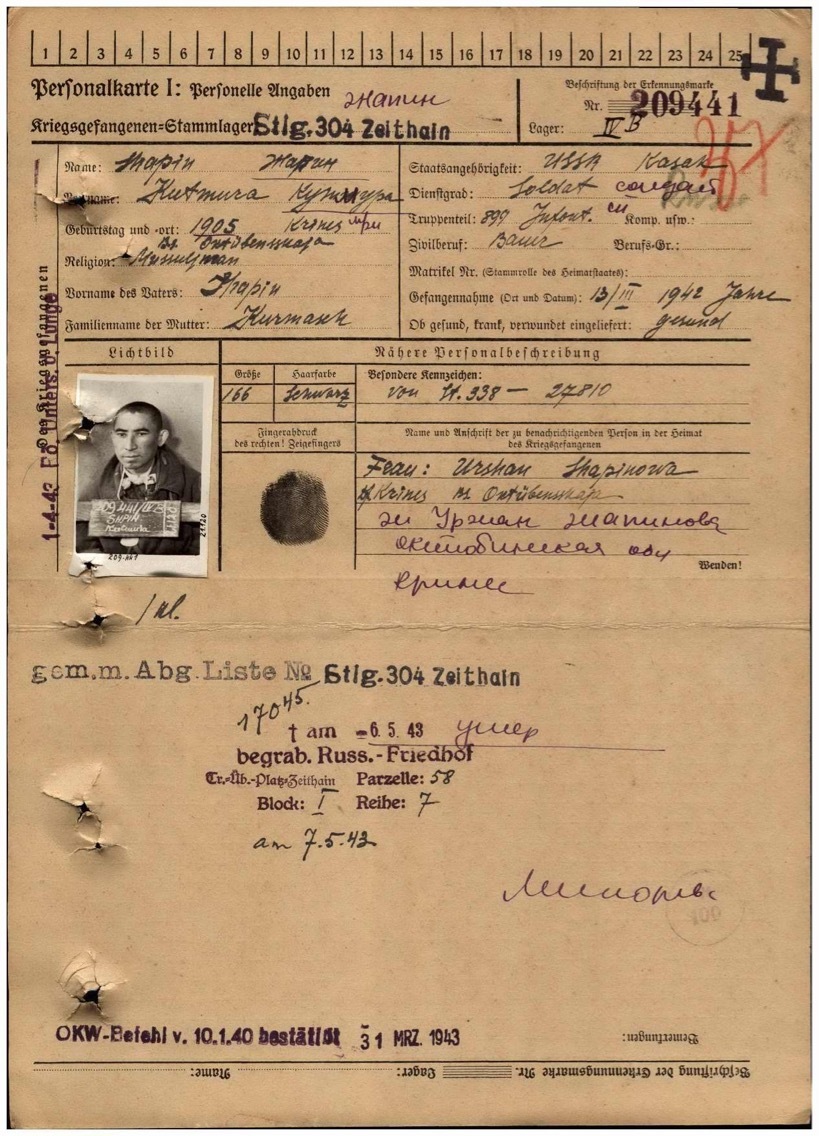 1 2 3 4 5 6 7 8 9 10 11 12 13 14 15 16 17 18 19 20 21 22 23 24 25
Personalkarte I: Personelle Angaben
жапин
Beschriftung der Erkennungsmarke
Nr. 209441
Kriegsgefangenen=Stammlager: Stlg. 304 Zeithain
Lager: IV B
Name: Shapin Жапин
Vorname: Kutmura Кутмура
Geburtstag und -ort: 1905 Krines
Bz. Ontübenskaja
Religion: Musselman
Vorname des Vaters: Shapin
Familienname der Mutter: Kurmasch
Staatsangehörigkeit: USSR Kasak
Dienstgrad: Soldat солдат
Truppenteil: 899 Infant. сп Komp. usw.:
Zivilberuf: Bauer Berufs-Gr.:
Matrikel Nr. (Stammrolle des Heimatstaates):
Gefangennahme (Ort und Datum): 13/III 1942 Jahre
Ob gesund, krank, verwundet eingeliefert: gesund
Des Kriegsgefangenen
1-4-43 Fö. Unters. d. Lunge
Lichtbild
Nähere Personalbeschreibung
Größe
Haarfarbe
Besondere Kennzeichen:
166
Schwarz
von St. 338 — 27810
Fingerabdruck
des rechten! Zeigefingers
Name und Anschrift der zu benachrichtigenden Person in der Heimat
des Kriegsgefangenen
Frau: Urshan Shapinowa
Krines Bz Ontübenskaja
ж Уржан жапинова
октюбинская обл
Кринес
Wenden!
209441/IVB
SHPIN
Kutmura
209441
21720
gem.m. Abg. Liste № Stlg. 304 Zeithain
17045.
† am - 6. 5. 43 умер
begrab. Russ.-Friedhof
Tr.-Üb.-Platz-Zeithain Parzelle: 58
Block: I Reihe: 7
am 7.5.43
OKW-Befehl v. 10.1.40 bestätigt 31 MRZ. 1943
Bemerkungen:
Beschriftung der Erkennungsmarke Nr. Lager: Name: